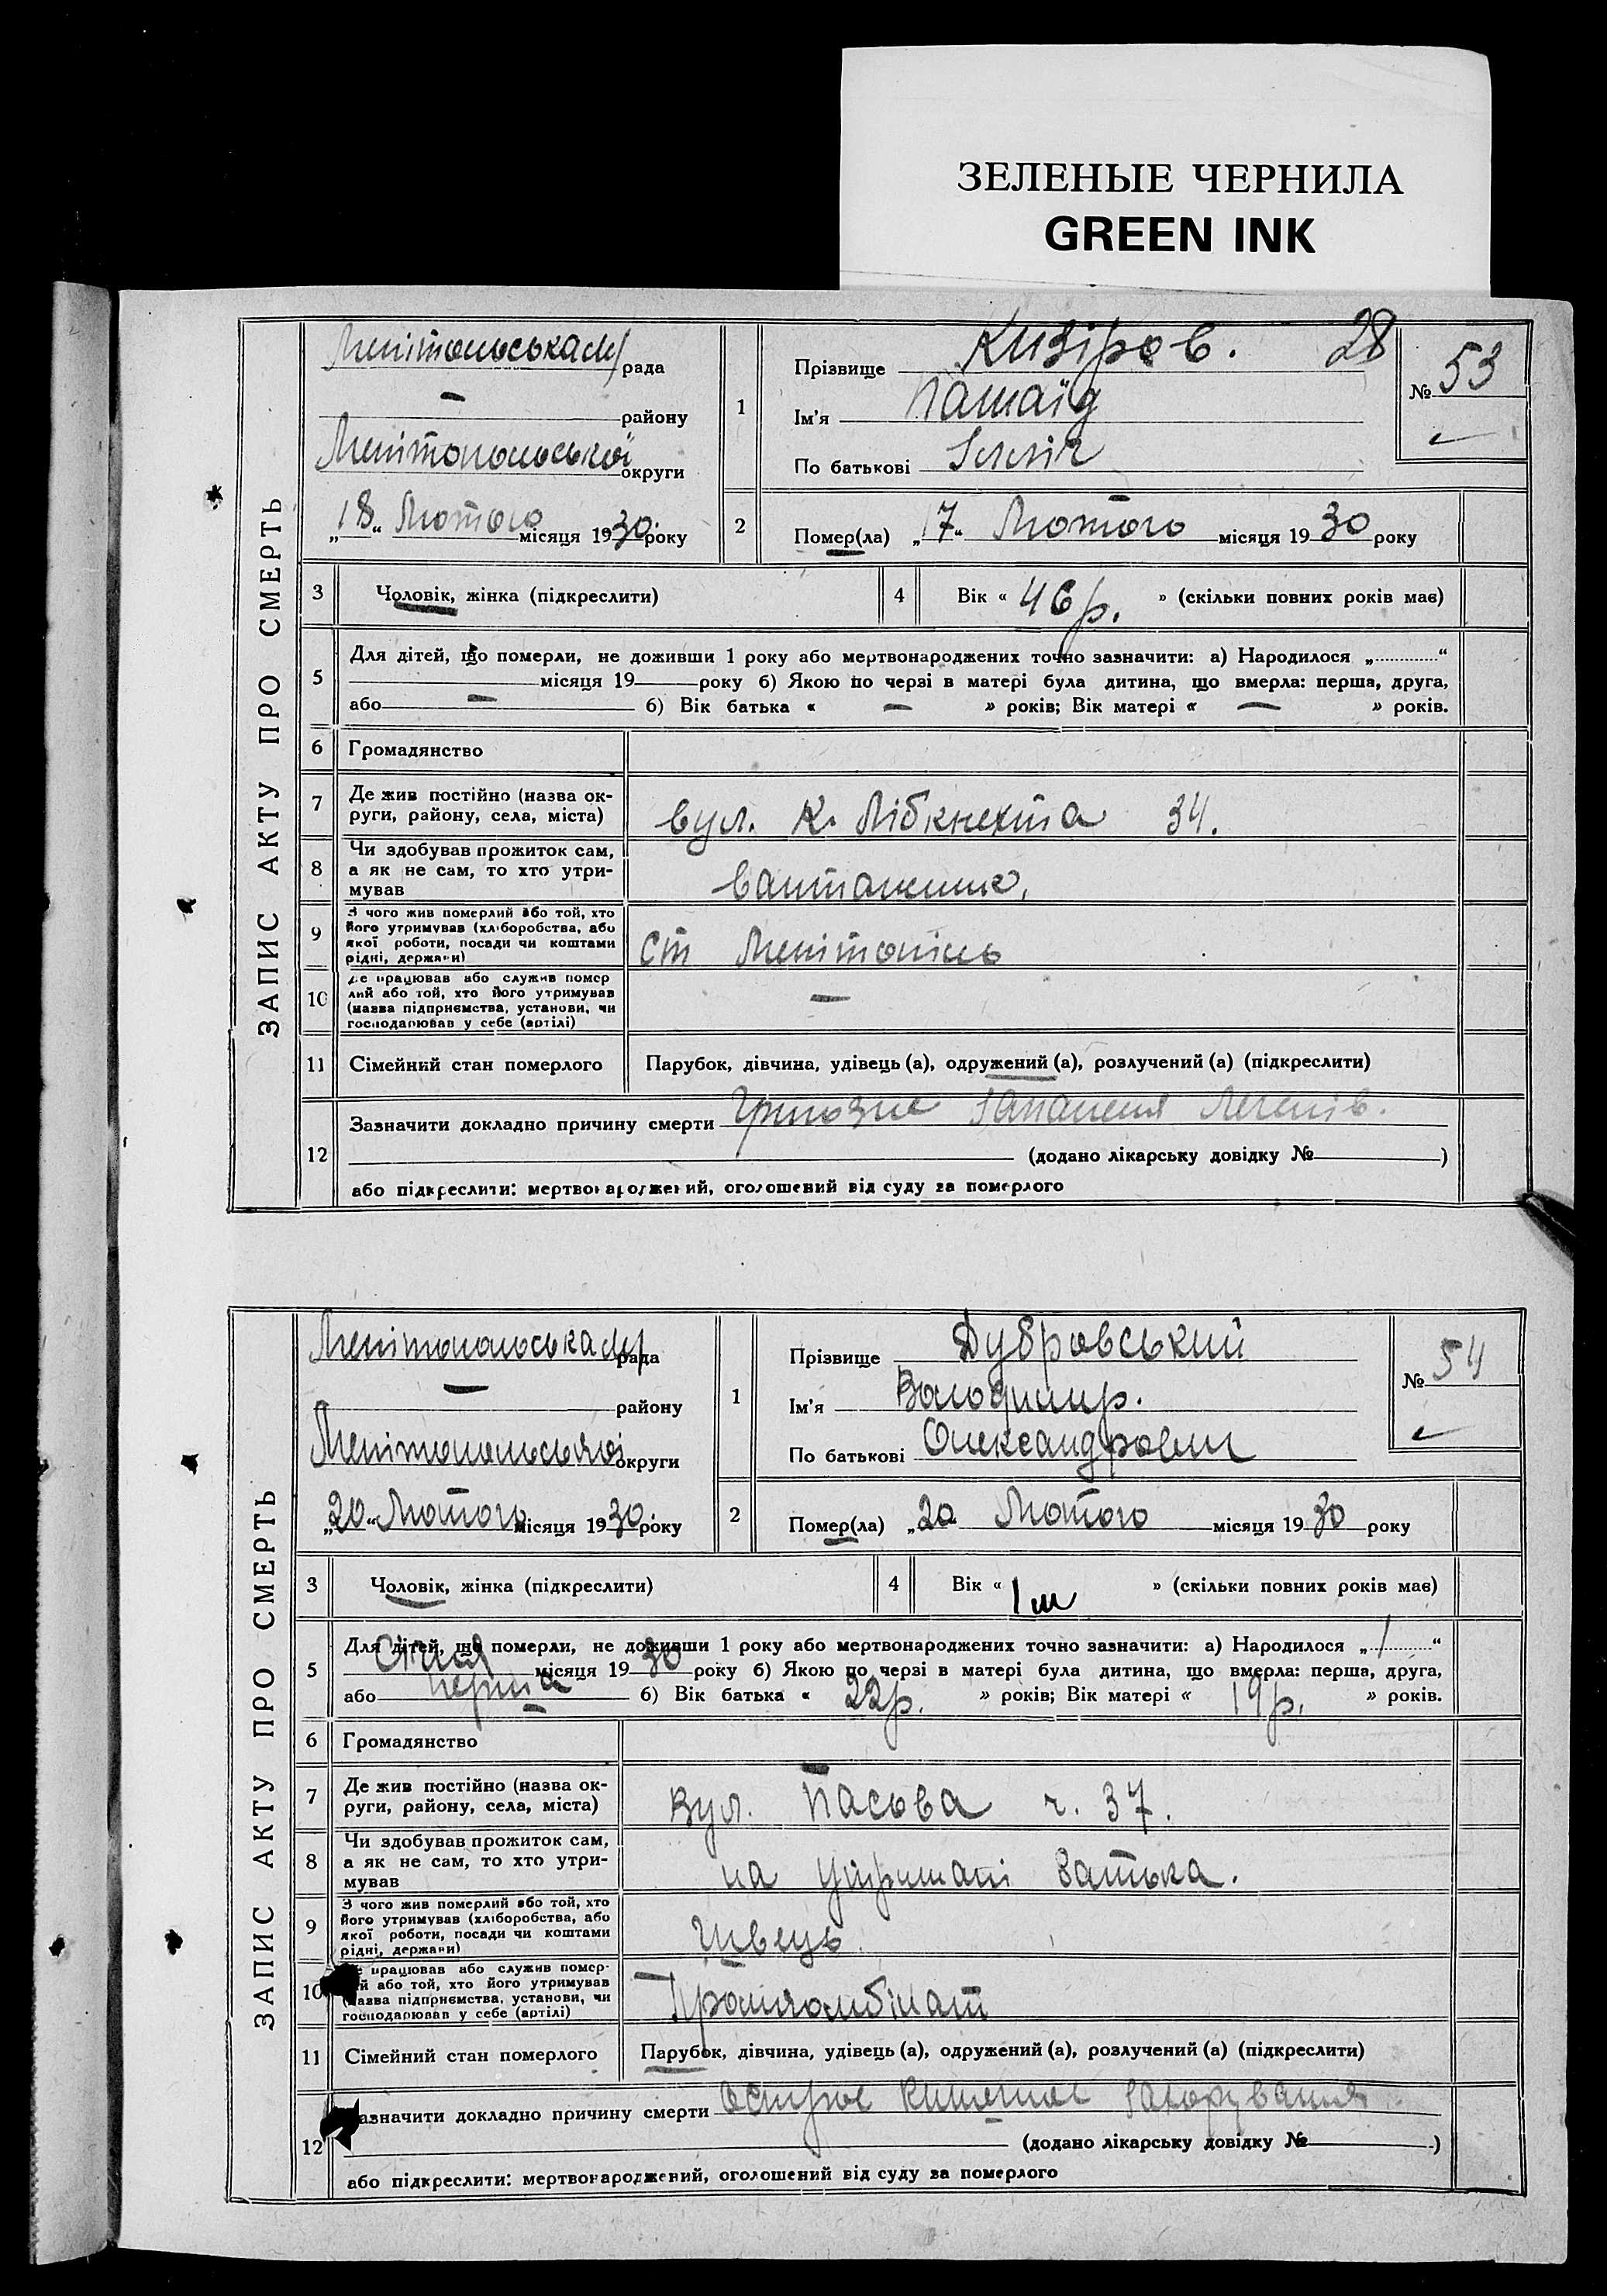 ЗЕЛЕНЫЕ ЧЕРНИЛА
GREEN INK
ЗАПИС АКТУ ПРО СМЕРТЬ
Мелітопольська м/рада
— району
Мелітопольської округи
„18“ Лютого місяця 1930 року
1
Прізвище Кизіров. 28
Ім'я
По батькові
№ 53
2
Помер(ла) „17“ Лютого місяця 1930 року
3 Чоловік, жінка (підкреслити)
4 Вік « 46 р. » (скільки повних років має)
5 Для дітей, що померли, не доживши 1 року або мертвонароджених точно зазначити: а) Народилося „ “
місяця 19 року б) Якою по черзі в матері була дитина, що вмерла: перша, друга,
або — б) Вік батька « — » років; Вік матері « — » років.
6 Громадянство
7 Де жив постійно (назва ок-
руги, району, села, міста)
вул. К. Лібкнехта 34.
8 Чи здобував прожиток сам,
а як не сам, то хто утри-
мував
вантажник,
9 З чого жив померлий або той, хто
його утримував (хліборобства, або
якої роботи, посади чи коштами
рідні, держави)
ст Мелітопіль
10 Де працював або служив помер
лий або той, хто його утримував
(назва підприємства, установи, чи
господарював у себе (артілі)
—
11 Сімейний стан померлого
Парубок, дівчина, удівець (а), одружений (а), розлучений (а) (підкреслити)
12 Зазначити докладно причину смерти Грипозне запаленя легенів.
(додано лікарську довідку № )
або підкреслити: мертвонароджений, оголошений від суду за померлого
ЗАПИС АКТУ ПРО СМЕРТЬ
Мелітопольська м/рада
— району
Мелітопольської округи
„20“ Лютого місяця 1930 року
1
Прізвище Дубровський
Ім'я Володимир.
По батькові Олександрович
№ 54
2
Помер(ла) „20 Лютого місяця 1930 року
3 Чоловік, жінка (підкреслити)
4 Вік « 1 м » (скільки повних років має)
5 Для дітей, що померли, не доживши 1 року або мертвонароджених точно зазначити: а) Народилося „ 1 “
Січня місяця 1930 року б) Якою по черзі в матері була дитина, що вмерла: перша, друга,
або перша б) Вік батька « 22 р. » років; Вік матері « 19 р. » років.
6 Громадянство
7 Де жив постійно (назва ок-
руги, району, села, міста)
вул. Пасова ч. 37.
8 Чи здобував прожиток сам,
а як не сам, то хто утри-
мував
на утримані батька.
9 З чого жив померлий або той, хто
його утримував (хліборобства, або
якої роботи, посади чи коштами
рідні, держави)
Швець.
10 Де працював або служив помер-
лий або той, хто його утримував
(назва підприємства, установи, чи
господарював у себе (артілі)
Промкомбінат
11 Сімейний стан померлого
Парубок, дівчина, удівець (а), одружений (а), розлучений (а) (підкреслити)
12 Зазначити докладно причину смерти острое кишечне захорування
(додано лікарську довідку № )
або підкреслити: мертвонароджений, оголошений від суду за померлого